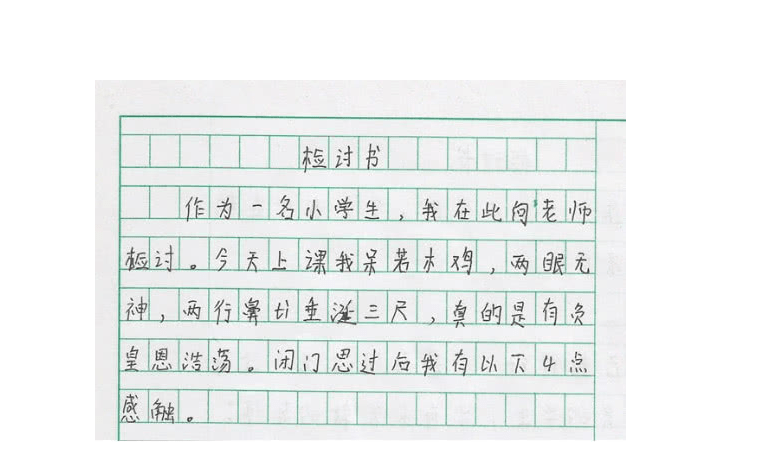 检讨书
作为一名小学生，我在此向老师
检讨。今天上课我呆若木鸡，两眼无
神，两行鼻讪垂涎三尺，真的是有负
皇恩浩荡。闭门思过后我有以下4点
感触。